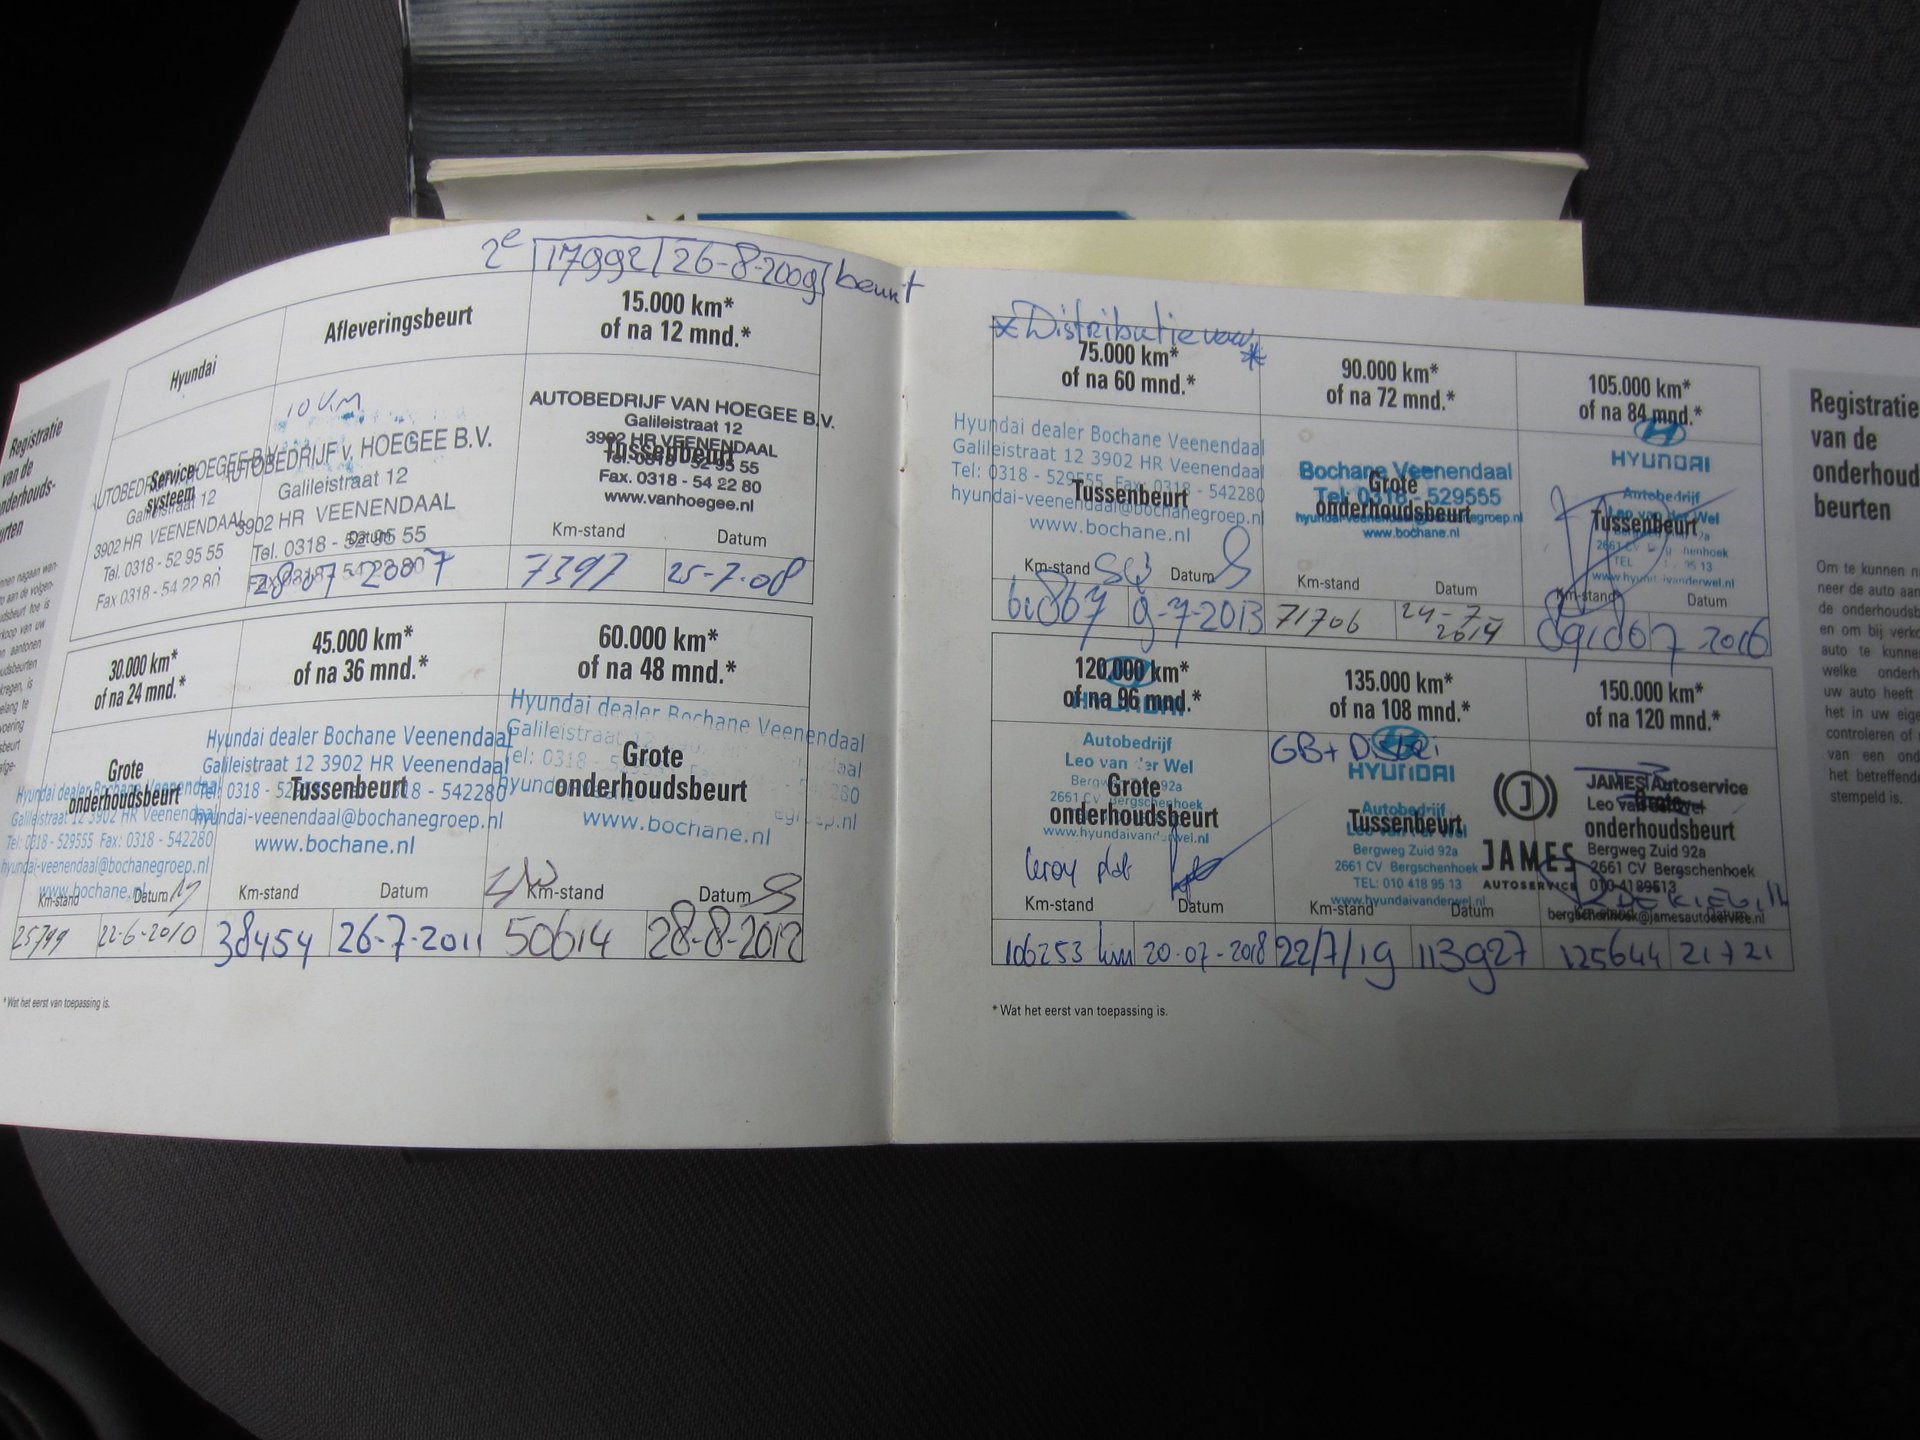 2e 17992 26-8-2009 beurt
Registratie
van de
onderhouds-
beurten
Hyundai
Afleveringsbeurt
15.000 km*
of na 12 mnd.*
Service
systeem
AUTOBEDRIJF V. HOEGEE B.V.
Galileistraat 12
3902 HR VEENENDAAL
Tel. 0318 - 52 95 55
Fax 0318 - 54 22 80
10 KM
AUTOBEDRIJF v. HOEGEE B.V.
Galileistraat 12
3902 HR VEENENDAAL
Tel. 0318 - 52 95 55
Fax 0318 - 54 22 80
Datum
28-07-2007
AUTOBEDRIJF VAN HOEGEE B.V.
Galileistraat 12
3902 HR VEENENDAAL
Tussenbeurt
Tel. 0318 - 52 95 55
Fax. 0318 - 54 22 80
www.vanhoegee.nl
Km-stand Datum
7397 25-7-08
30.000 km*
of na 24 mnd.*
45.000 km*
of na 36 mnd.*
60.000 km*
of na 48 mnd.*
Grote
onderhoudsbeurt
Hyundai dealer Bochane Veenendaal
Galileistraat 12 3902 HR Veenendaal
Tel: 0318 - 529555 Fax: 0318 - 542280
hyundai-veenendaal@bochanegroep.nl
www.bochane.nl
Km-stand Datum
25799 22-6-2010
Hyundai dealer Bochane Veenendaal
Galileistraat 12 3902 HR Veenendaal
Tussenbeurt
hyundai-veenendaal@bochanegroep.nl
www.bochane.nl
Km-stand Datum
38454 26-7-2011
Hyundai dealer Bochane Veenendaal
Galileistraat
Grote
onderhoudsbeurt
www.bochane.nl
Km-stand Datum
50614 28-8-2012
* Wat het eerst van toepassing is.
* Distributie *
75.000 km*
of na 60 mnd.*
90.000 km*
of na 72 mnd.*
105.000 km*
of na 84 mnd.*
Hyundai dealer Bochane Veenendaal
Galileistraat 12 3902 HR Veenendaal
Tel: 0318 - 529555 Fax: 0318 - 542280
Tussenbeurt
hyundai-veenendaal@bochanegroep.nl
www.bochane.nl
Km-stand Datum
9-7-2013
Bochane Veenendaal
Grote
Tel: 0318 - 529555
onderhoudsbeurt
hyundai-veenendaal@bochanegroep.nl
www.bochane.nl
Km-stand Datum
71706 24-7-2014
HYUNDAI
Autobedrijf
Leo van der Wel
Tussenbeurt
www.hyundaivanderwel.nl
Km-stand Datum
7 2016
120.000 km*
of na 96 mnd.*
135.000 km*
of na 108 mnd.*
150.000 km*
of na 120 mnd.*
HYUNDAI
Autobedrijf
Leo van der Wel
Grote
2661 CV Bergschenhoek
onderhoudsbeurt
www.hyundaivanderwel.nl
Km-stand Datum
106253 km 20-07-2018
GB+ Distri
HYUNDAI
Autobedrijf
Leo van der Wel
Tussenbeurt
Bergweg Zuid 92a
2661 CV Bergschenhoek
TEL: 010 418 95 13
www.hyundaivanderwel.nl
Km-stand Datum
22/7/19 113927
JAMES
AUTOSERVICE
JAMES Autoservice
Leo van der Wel
Grote
onderhoudsbeurt
Bergweg Zuid 92a
2661 CV Bergschenhoek
010-4189513
bergschenhoek@jamesautoservice.nl
125644 21 7 21
* Wat het eerst van toepassing is.
Registratie
van de
onderhoud
beurten
Om te kunnen
neer de auto aan
de onderhouds
en om bij verko
auto te kunne
welke onderh
uw auto heeft
het in uw eige
controleren of
van een ond
het betreffende
stempeld is.